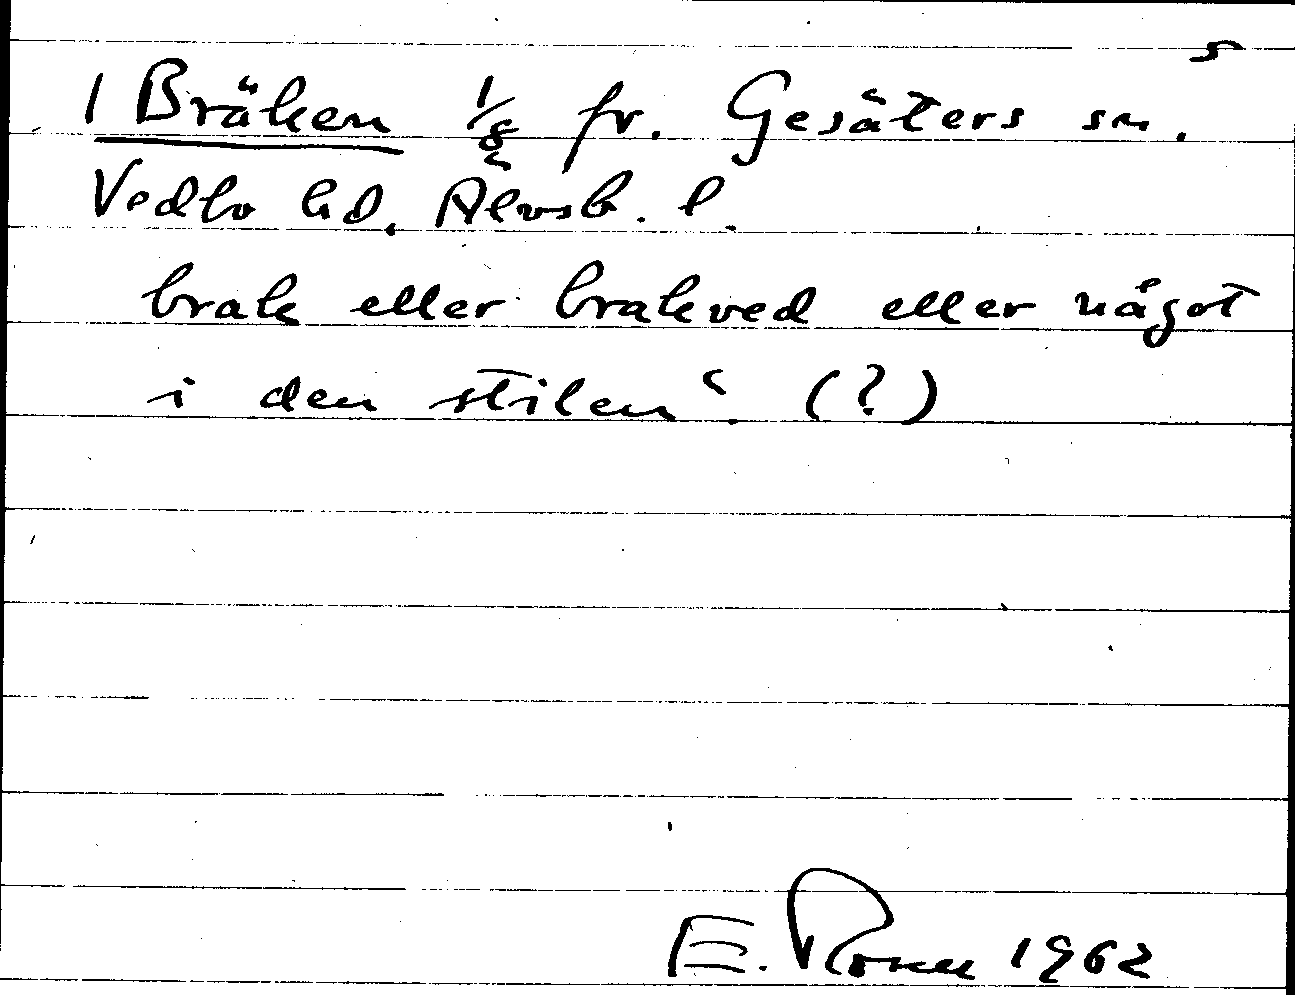 5
1 Bräken 1/8 fr. Gesäters sn.
Vedbo hd, Älvsb. l.
brak eller brakved eller något
i den stilen". (?)
E. 1962